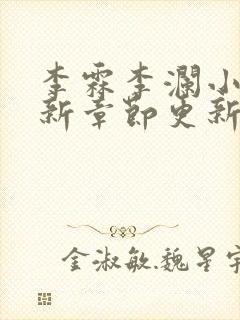 李霖李澜小
新章节更新
金淑敏魏星宇